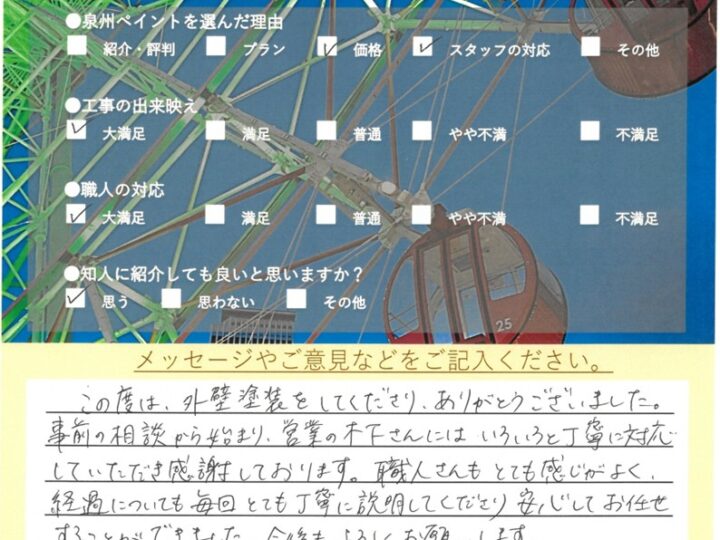 ●泉州ペイントを選んだ理由
紹介・評判 プラン 価格 スタッフの対応 その他
●工事の出来映え
大満足 満足 普通 やや不満 不満足
●職人の対応
大満足 満足 普通 やや不満 不満足
●知人に紹介しても良いと思いますか？
思う 思わない その他
25
メッセージやご意見などをご記入ください。
この度は、外壁塗装をしてくださり、ありがとうございました。
事前の相談から始まり、営業の木下さんにはいろいろと丁寧に対応
していただき感謝しております。職人さんもとても感じがよく、
経過についても毎回とても丁寧に説明してくださり安心してお任せ
することができました。今後もよろしくお願いします